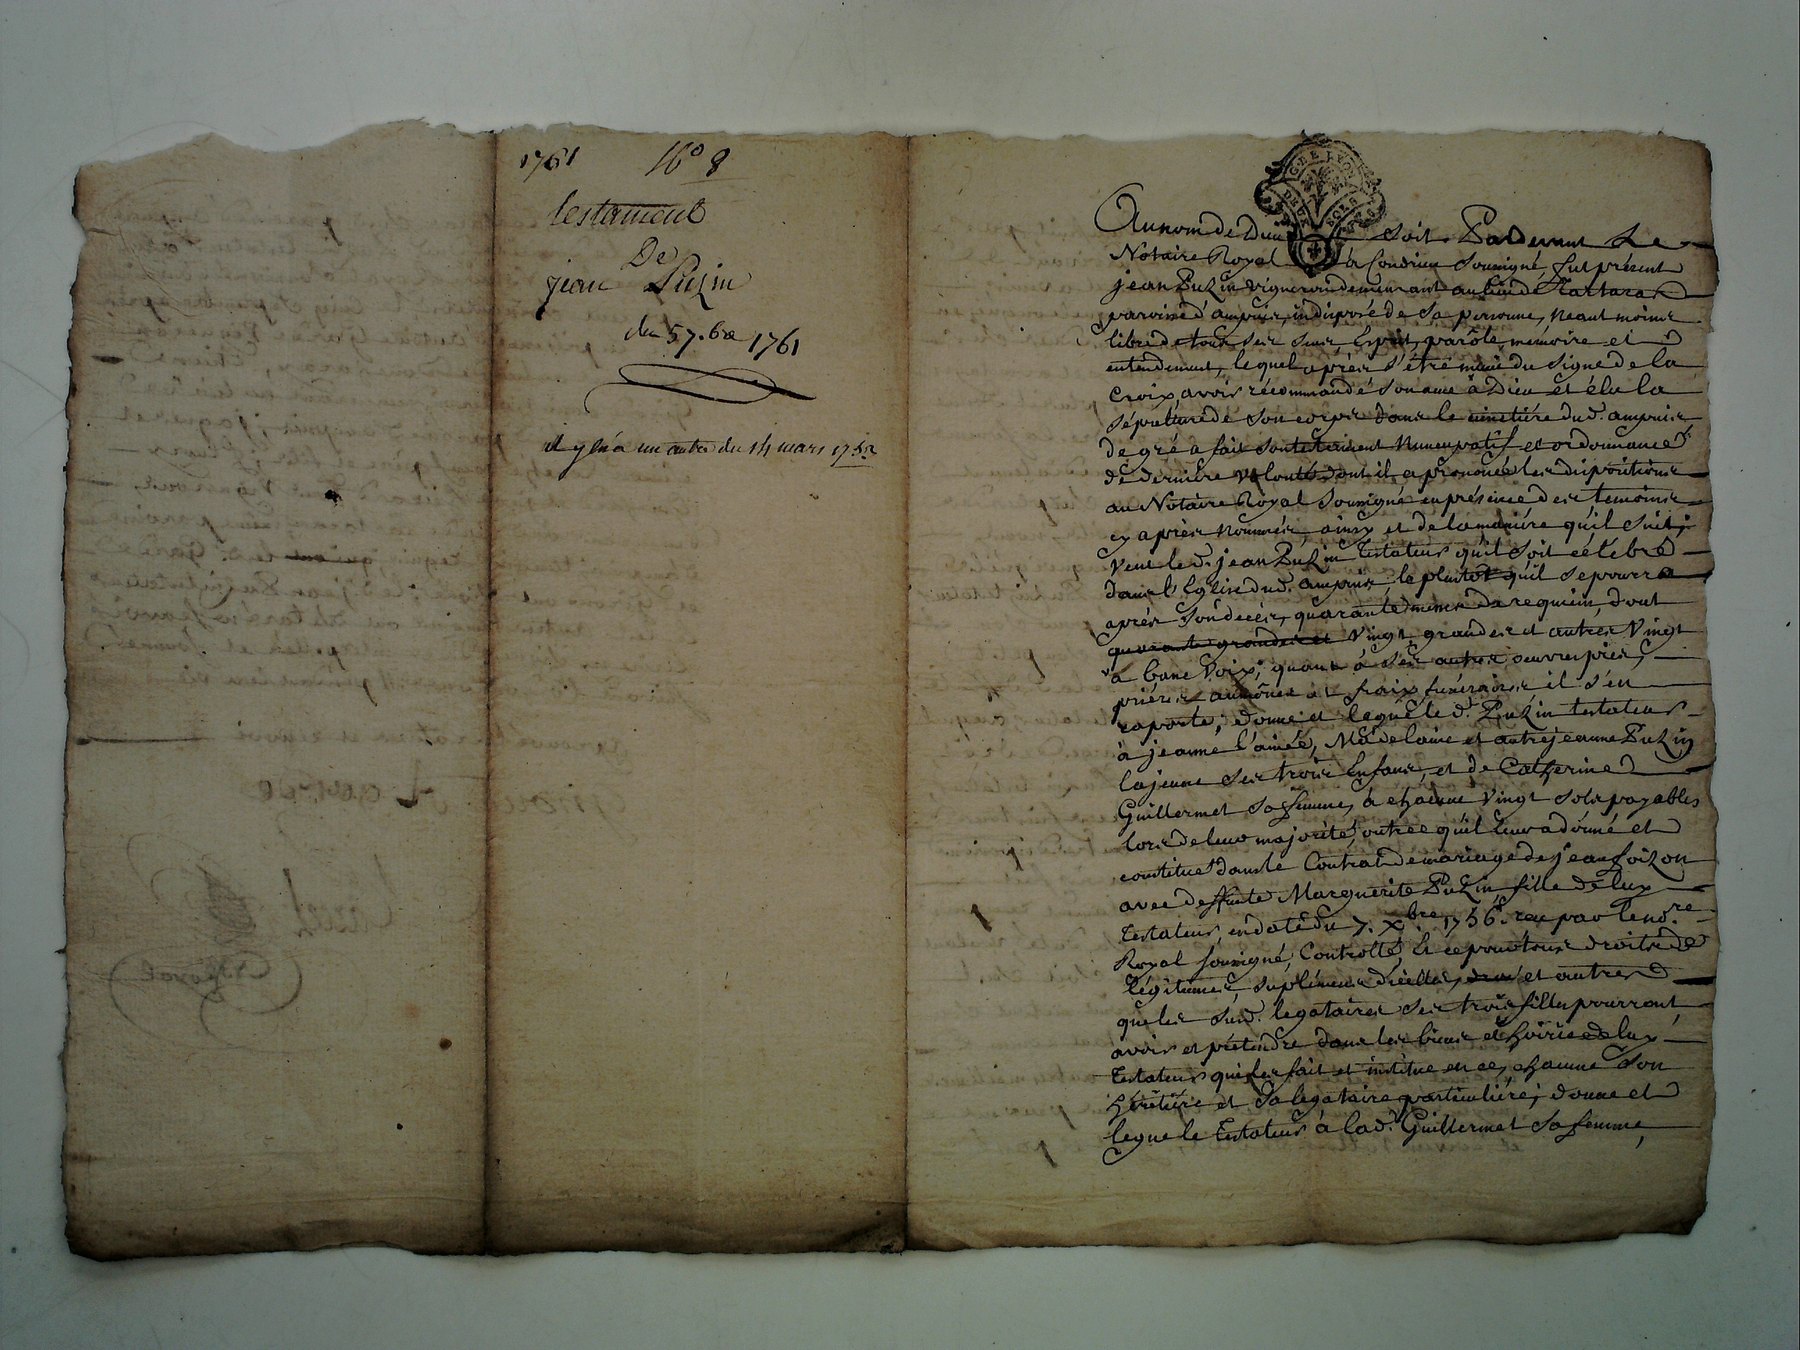 1761 N° 8
testament
De
jean Puzin
du 5 7.bre 1761
il y en a un autre du 14 mars 1752
GDE LYON
DEUX SOLS
Au nom de Dieu soit Pardevant Le
Notaire Royal à Condrieu soussigné, fut présent
jean Puzin vigneron demeurant au lieu de Tartaras
paroisse d'ampuis, indisposé de sa personne, neantmoins
libre de tous ses sens, esprit, parôle, mémoire et
entendement, lequel aprés s'étre muni du signe de la
croix, avoir récommandé son ame à Dieu et élu la
sépulture de son corps dans le cimetiére dud. ampuis
de gré a fait son testament Nuncupatif et ordonnance
de derniére volonté dont il a prononcé les dispositions
au Notaire Royal soussigné en présence des temoins
cy aprés nommés, ainsy et de la maniére qu'il suit;
Veut led. jean Puzin testateur qu'il soit célébré
dans l'Eglise dud. ampuis, le plutôt qu'il se pourra
aprés son décés, quarante messes de requiem, dont
quarante grandes et vingt grandes et autres vingt
a basse voix; quant à ses autres oeuvres pies,
priéres aumônes et fraix funéraires il s'en
raporte; donne et legue led. Puzin testateur
à jeanne l'ainée, Madelaine et autre jeanne Puzin
la jeune ses trois enfans, et de Catherine
Guillermet sa femme, à chacune vingt sols payables
lors de leur majorité, outre ce qu'il leur a donné et
constitué dans le Contrat de mariage de jean Loizon
avec deffunte Marguerite Puzin fille de luy
testateur, en date du 7. Xbre 1756. reçu par le no.re
Royal soussigné, Controllé, Et ce pour tous droits de
légitimes, suplémens d'icelles, et autres
que les sud. legataires ses trois filles pourront
avoir et prétendre dans les biens et hoirie de luy
testateur qui les fait et institue en ce, chacune son
héritiére et sa legataire particuliére; donne et
legue le testateur à lad. Guillermet sa femme,